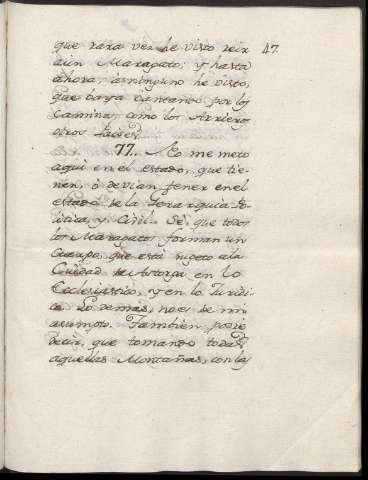 que rara vez he visto reir 47.
aun Maragato; y hasta
ahora, à ninguno he visto,
que vaya cantando por los
Caminos, como los Arrieros
otros Paises.
77. No me meto
aqui en el estado, que tie-
nen, ò devian tener en el
estado de la Gerarquia Po-
litica, y Civil. Sè, que todos
los Maragatos forman un
Cuerpo, que està sugeto à la
Ciudad de Astorga en lo
Ecclesiastico, y en lo Juridi-
co. Lo demàs, no es de mi
asumpto. Tambien podrè
decir, que tomando todas
aquellas Montañas, con las